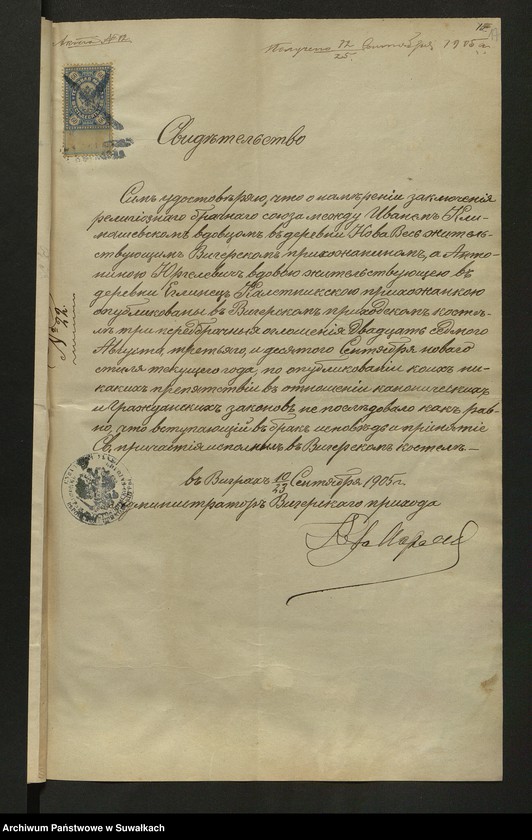 Актъ № 12.
Получено 12/25 Сентября 1905 г.
Свидѣтельство
Симъ удостовѣряю, что о намѣреніи заключенія
религіознаго брачнаго союза между Иваномъ Кли-
машевскомъ вдовцомъ, въ деревни Нова Весь житель-
ствующимъ Вигерскомъ прихожаниномъ, а Анто-
ниною Юргелевичъ вдовою жительствующею въ
деревни Еглинецъ Калетникскою прихожанкою
опубликованы въ Вигерскомъ приходскомъ косте-
лѣ три передбрачныя оглошенія Двадцать седмого
Августа, третьяго, и десятого Сентября новаго
стиля текущего года, по опубликованіи коихъ ни-
какихъ препятствіи въ отношеніи каноническихъ
и Гражданскихъ законовъ не послѣдовало какъ рав-
но, что вступающій въ бракъ исповѣдь и принятіе
Св. причастія исполнилъ въ Вигерскомъ костелѣ. —
въ Виграхъ 10/23 Сентября 1905 г.
Администраторъ Вигерскаго прихода
№ 29
Archiwum Państwowe w Suwałkach